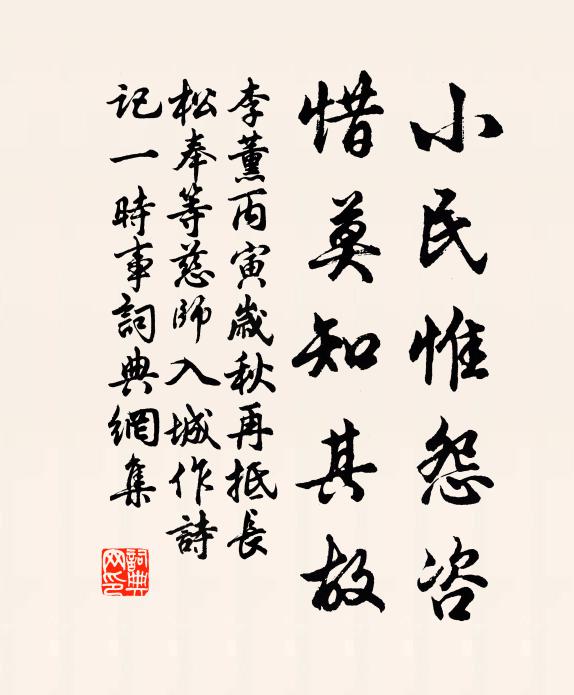 小民惟怨咨
惜莫知其故
李薰丙寅歲秋再抵長
松奉等慈師入城作詩
記一時事詞典網集
詞典網印